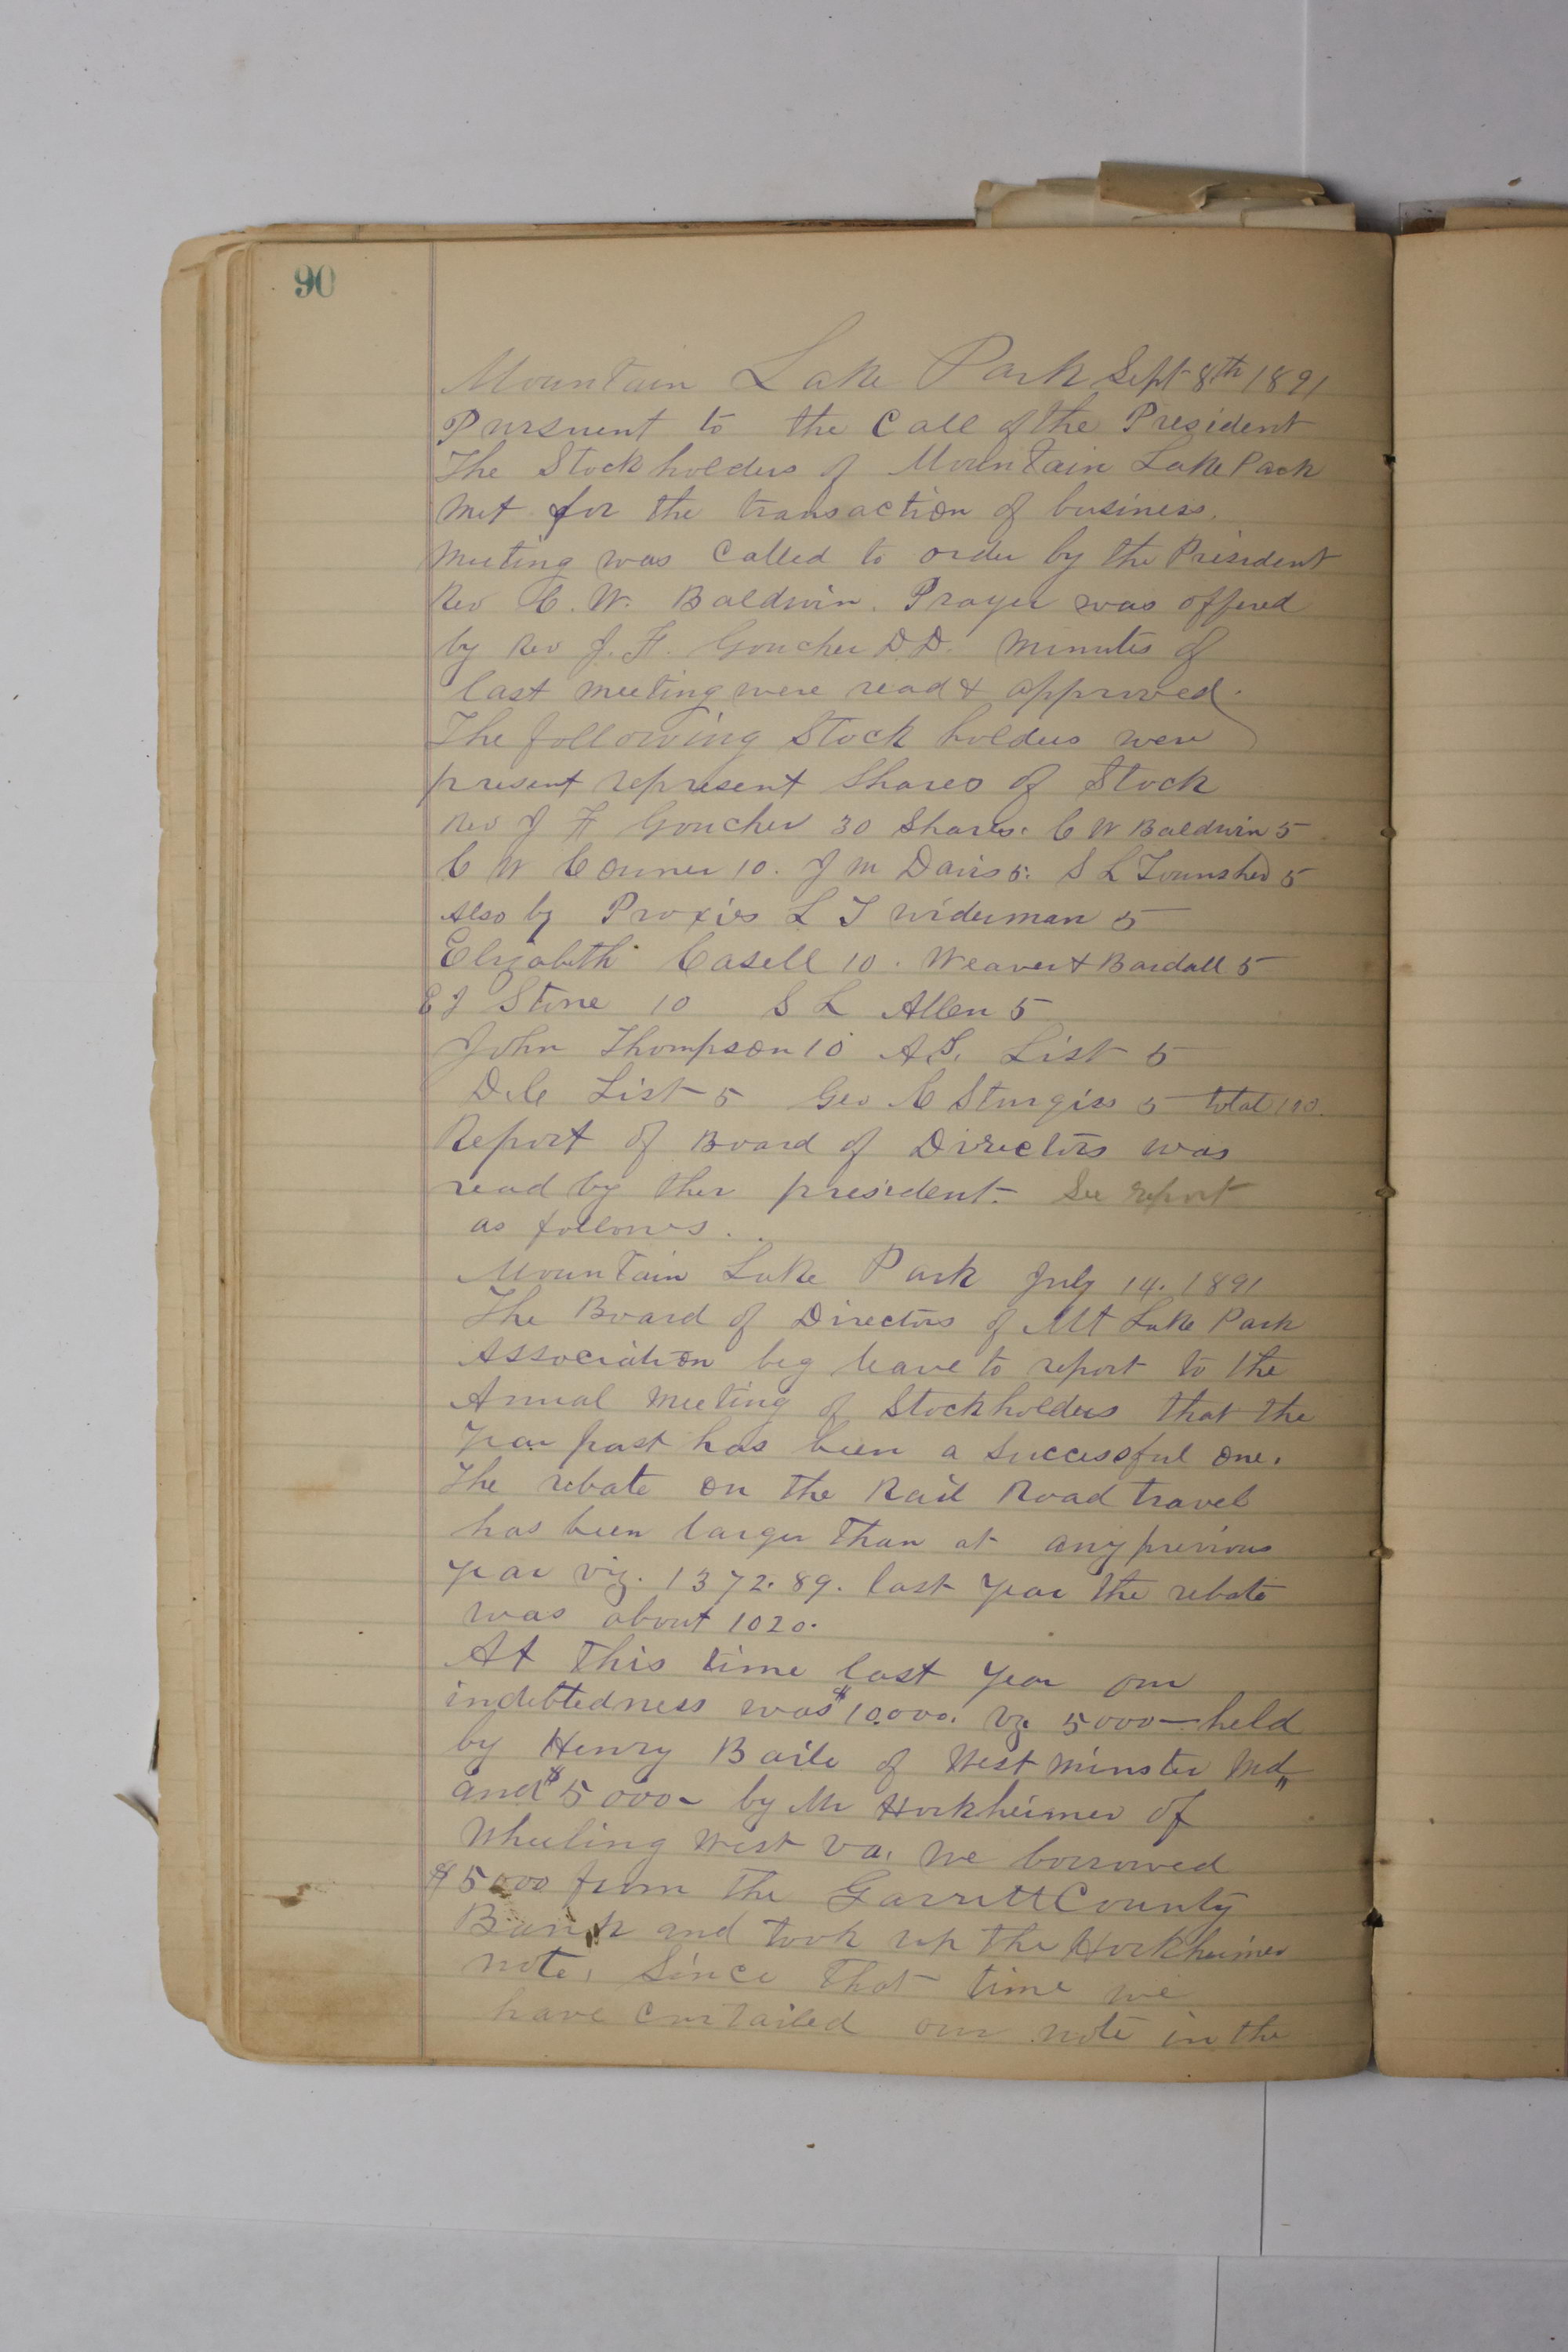 90
Mountain Lake Park Sept 8th 1891
Pursuent to the Call of the President
The Stockholders of Mountain Lake Park
met for the transaction of business.
Meeting was Called to order by the President
Rev C. W. Baldwin. Prayer was offered
by Rev J. F. Goucher D D. Minutes of
last meeting were read & approved.
The following Stock holders were
present represent Shares of Stock
Rev J F Goucher 30 Shares. C W Baldwin 5
C W Conner 10. J M Davis 5. S L Townshed 5
Also by Proxies L T Widerman 5
Elizabeth Casell 10. Weaver & Bardall 5
E J Stone 10 S L Allen 5
John Thompson 10 A S. List 5
D. C List 5 Geo C Sturgiss 5 total 110.
Report of Board of Directors was
read by ther president. See report
as follows..
Mountain Lake Park July 14. 1891
The Board of Directors of Mt Lake Park
Association beg leave to report to the
Annual Meeting of Stockholders that the
year past has been a Successful one.
The rebate on the Rail Road travel
has been larger than at any previous
year viz. 1372.89. last year the rebate
was about 1020.
At this time last year our
indebtedness was $10.000. Vz. 5000— held
by Henry Baile of West Minster Md,,
and $5000- by Mr Horkheimer of
Wheeling West Va. We borrowed
$5000 from the Garrett County
Bank and took up the Horkheimer
note. Since that time we
have curtailed our note in the